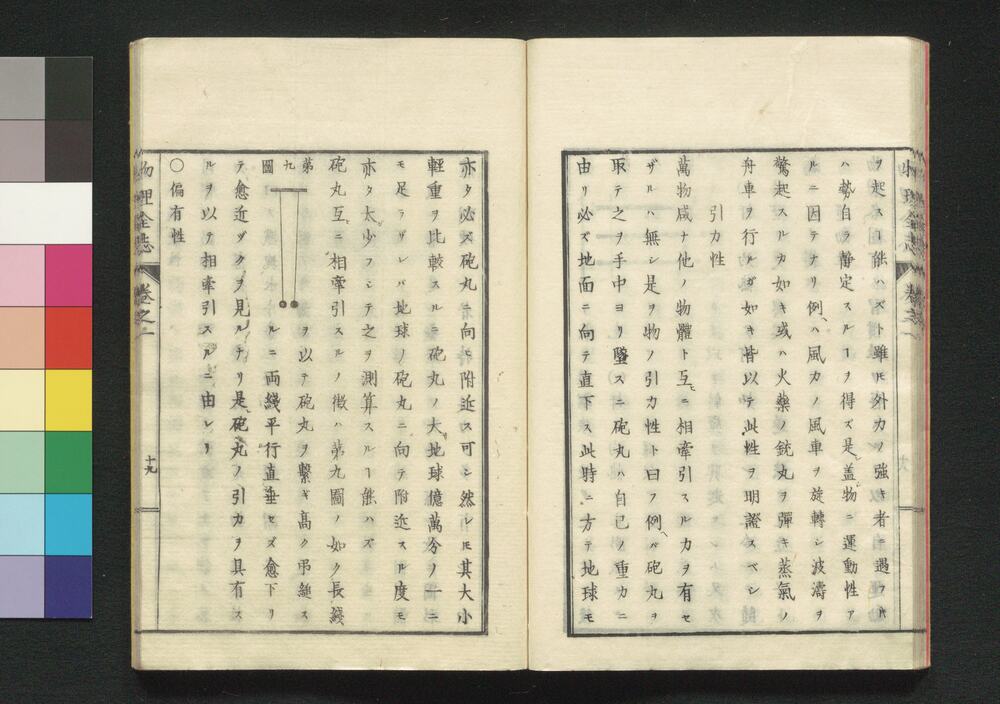 ヲ起スヿ能ハズト雖𪜈外力ノ強キ者ニ遇フ𪜈
ハ勢自ラ静定スルヿヲ得ズ是蓋物ニ運動性ア
ルニ因テナリ例ヘハ風力ノ風車ヲ旋轉シ波濤ヲ
驚起スルカ如キ或ハ火藥ノ銃丸ヲ彈キ蒸氣ノ
舟車ヲ行ルガ如キ皆以テ此性ヲ明證スベシ
引力性
萬物咸ナ他ノ物體ト互ニ相牽引スルカヲ有セ
ザルハ無シ是ヲ物ノ引力性ト曰フ例ヘバ砲丸ヲ
取テ之ヲ手中ヨリ墜スニ砲丸ハ自己ノ重力ニ
由リ必ズ地面ニ向テ直下ス此時ニ方テ地球モ
物理全志
卷之一
亦タ必ズ砲丸ニ向ヒ附近ス可シ然レ𪜈其大小
輕重ヲ比較スルニ砲丸ノ大地球億萬分ノ一ニ
モ足ラザレバ地球ノ砲丸ニ向テ附近スル度モ
亦タ太少フシテ之ヲ測算スルヿ能ハズ
砲丸互ニ相牽引スルノ徴ハ第九圖ノ如ク長綫
第九圖
ヲ以テ砲丸ヲ繫ギ高ク弔縋ス
ルニ両綫平行直垂セズ愈下リ
テ愈近ヅクヲ見ルナリ是砲丸ノ引力ヲ具有ス
ルヲ以テ相牽引スルニ由レリ
○偏有性
物理全志
卷之一
十九